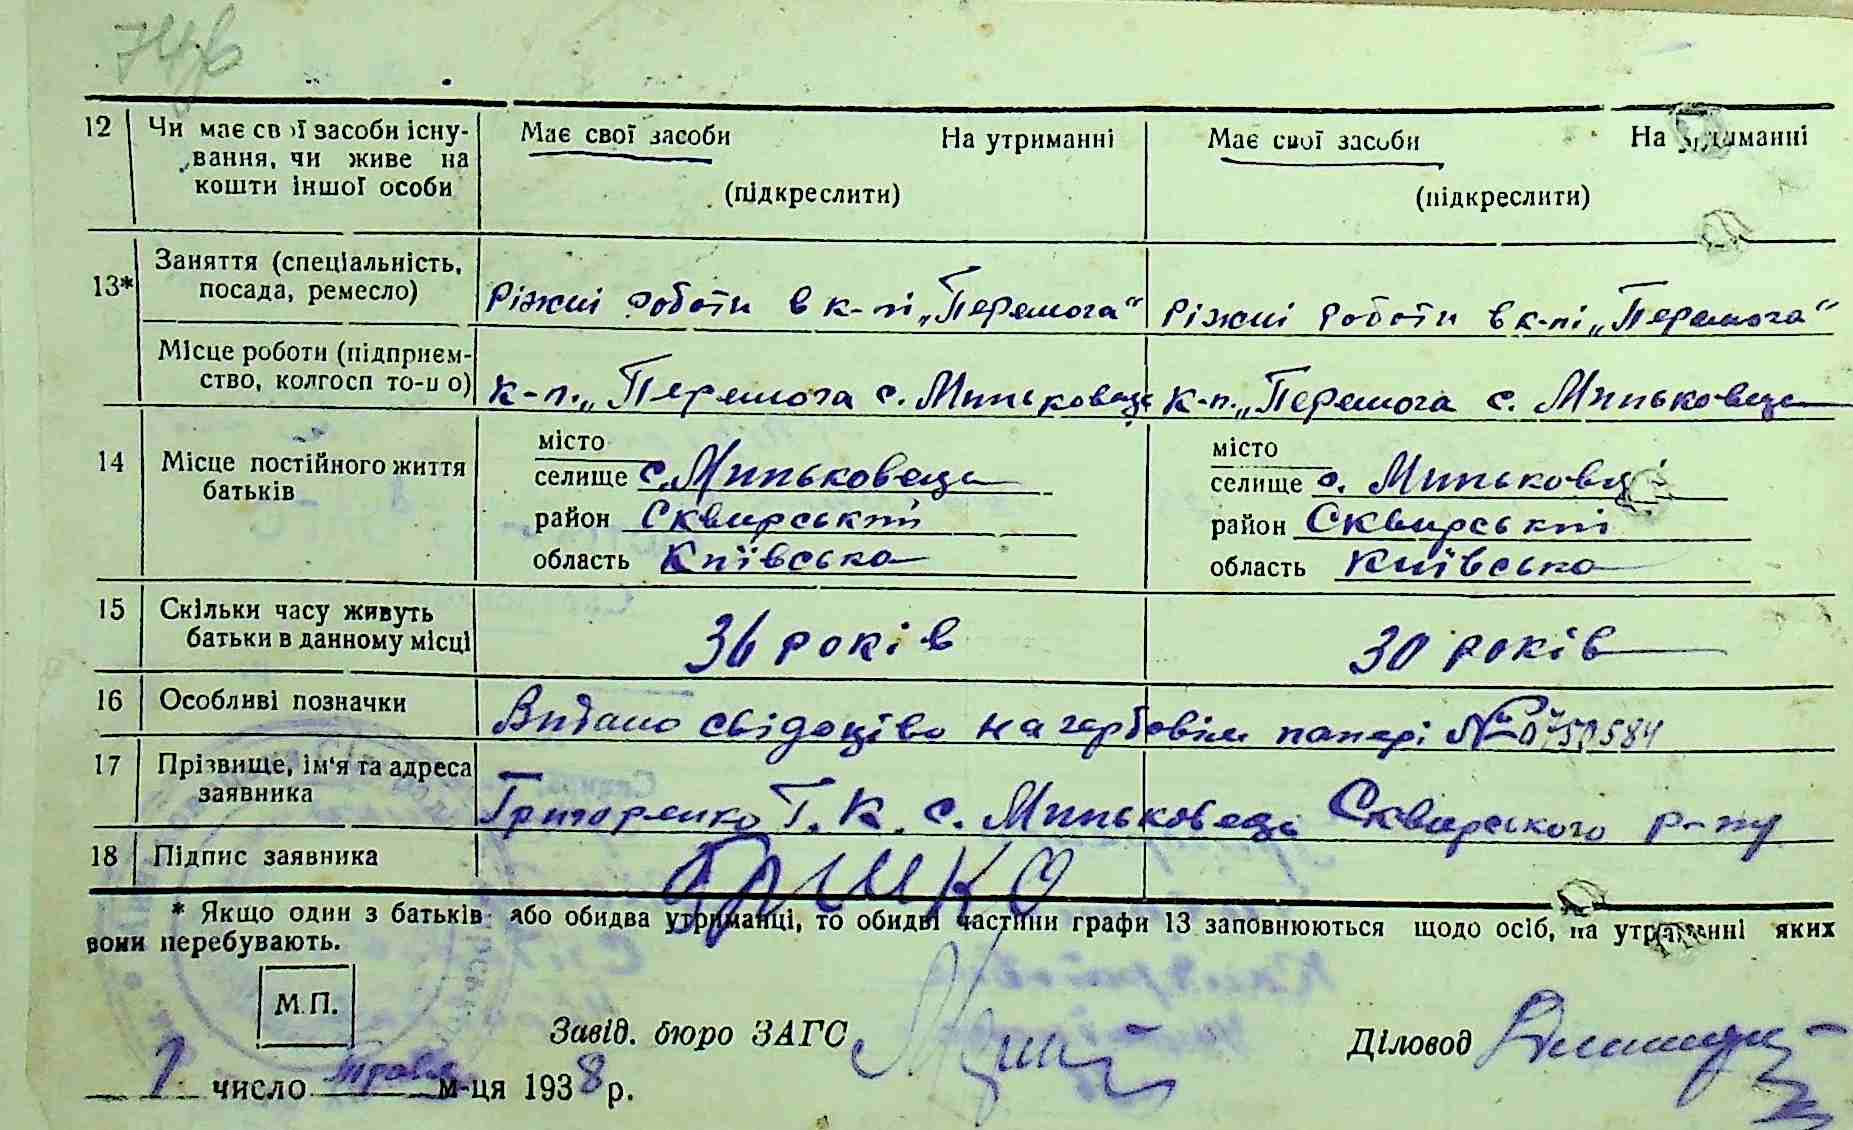 12 Чи має свої засоби існу- Має свої засоби На утриманні Має свої засоби На утриманні
вання, чи живе на
кошти іншої особи (підкреслити) (підкреслити)
13* Заняття (спеціальність,
посада, ремесло) Ріжні роботи в к-пі „Перемога“ Ріжні роботи в к-пі „Перемога“
Місце роботи (підприєм-
ство, колгосп то-що) к-п. „Перемога с. Миньковець к-п. „Перемога с. Миньковець
14 Місце постійного життя
батьків
місто місто
селище с. Миньковець селище с. Миньковці
район Сквирський район Сквирський
область Київська область Київська
15 Скільки часу живуть
батьки в данному місці 36 років 30 років
16 Особливі позначки Видано свідоцтво на гербовім папері № 0750584
17 Прізвище, ім'я та адреса
заявника Григоренко Т. К. с. Миньковець Сквирського р-ну
18 Підпис заявника
* Якщо один з батьків або обидва утриманці, то обидві частини графи 13 заповнюються щодо осіб, на утриманні яких
вони перебувають.
М.П.
Завід. бюро ЗАГС Діловод
1 число Травня м-ця 1938 р.